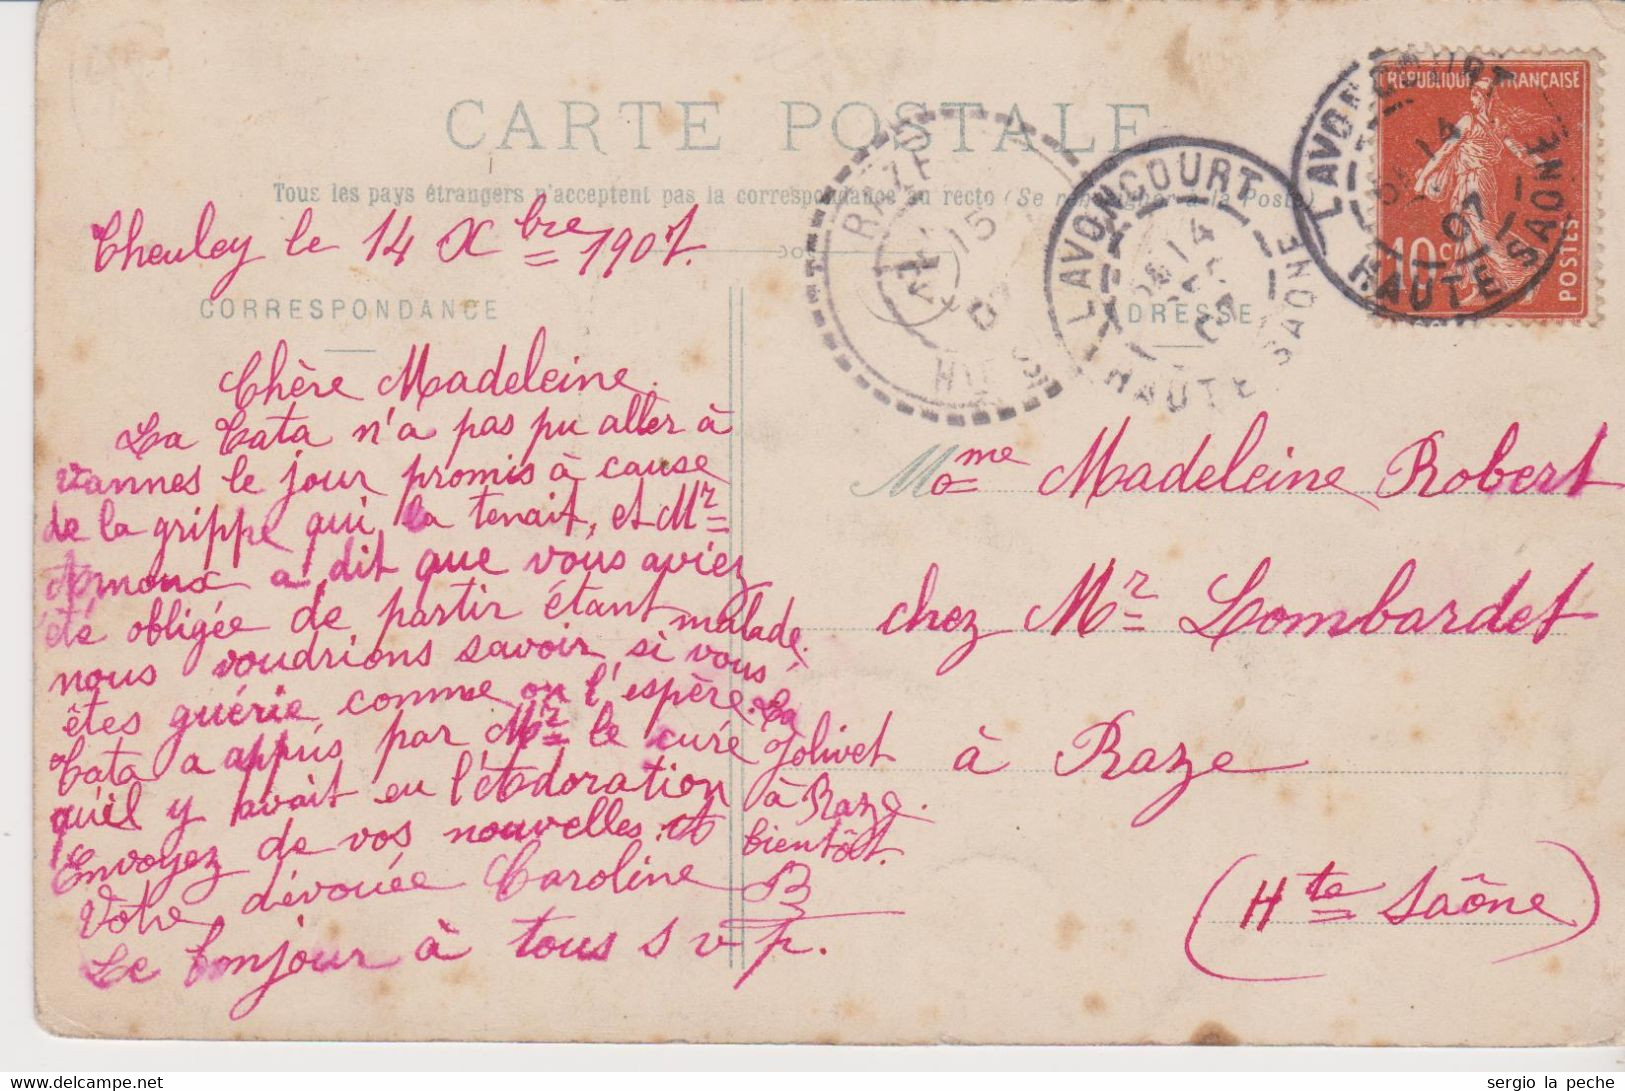 CARTE POSTALE
Tous les pays étrangers n'acceptent pas la correspondance au recto (Se renseigner à la Poste)
Theuley le 14 Xbre 1907.
CORRESPONDANCE
ADRESSE
Chère Madeleine.
La Tata n'a pas pu aller à
vannes le jour promis à cause
de la grippe qui la tenait, et Mr
a dit que vous aviez
été obligée de partir étant malade.
nous voudrions savoir si vous
êtes guérie comme on l'espère. La
Tata a appris par Mr le curé Jolivet
qu'il y avait eu l'Adoration à Raze.
Envoyez de vos nouvelles. A bientôt.
Votre dévouée Caroline B
Le bonjour à tous s v p.
Mme Madeleine Robert
chez Mr Lombardet
à Raze
(Hte Saône)
RAZE
15
LAVONCOURT
14
HAUTE SAONE
LAVONCOURT
14
07
HAUTE SAONE
REPUBLIQUE FRANÇAISE
10 c
POSTES
sergio la peche